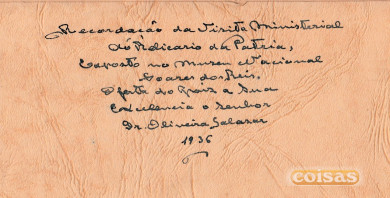 Recordação da Visita Ministerial
Ao Relicario da Patria,
Exposto no Museu Nacional
Soares dos Reis.
Oferta do Paiz a Sua
Excelencia o Senhor
Dr. Oliveira Salazar
1936
coisas